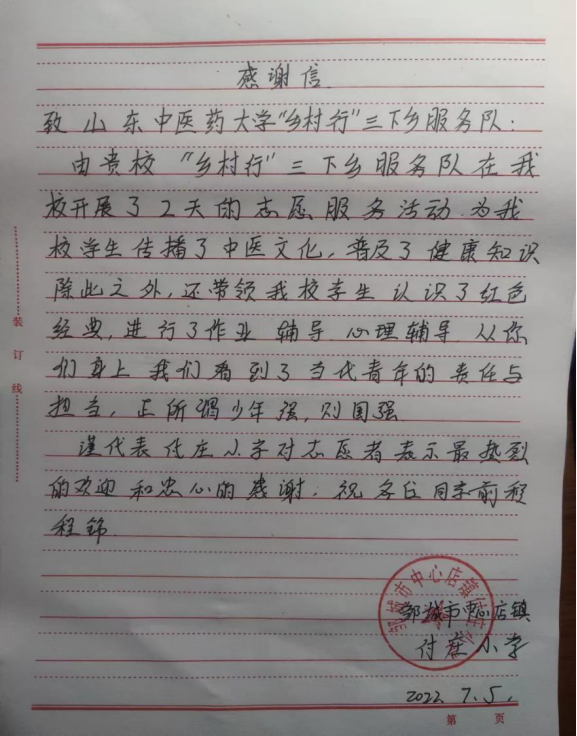 感谢信
致山东中医药大学"乡村行"三下乡服务队：
由贵校"乡村行"三下乡服务队在我
校开展了2天的志愿服务活动.为我
校学生传播了中医文化，普及了健康知识
除此之外，还带领我校学生认识了红色
经典，进行了作业辅导 心理辅导 从你
们身上我们看到了当代青年的责任与
担当，正所谓少年强，则国强
谨代表付庄小学对志愿者表示最热烈
的欢迎和忠心的感谢，祝各位同学前程
程锦
邹城市中心店镇
付庄小学
2022.7.5.
邹城市中心店镇付庄小学
装订线
第 页